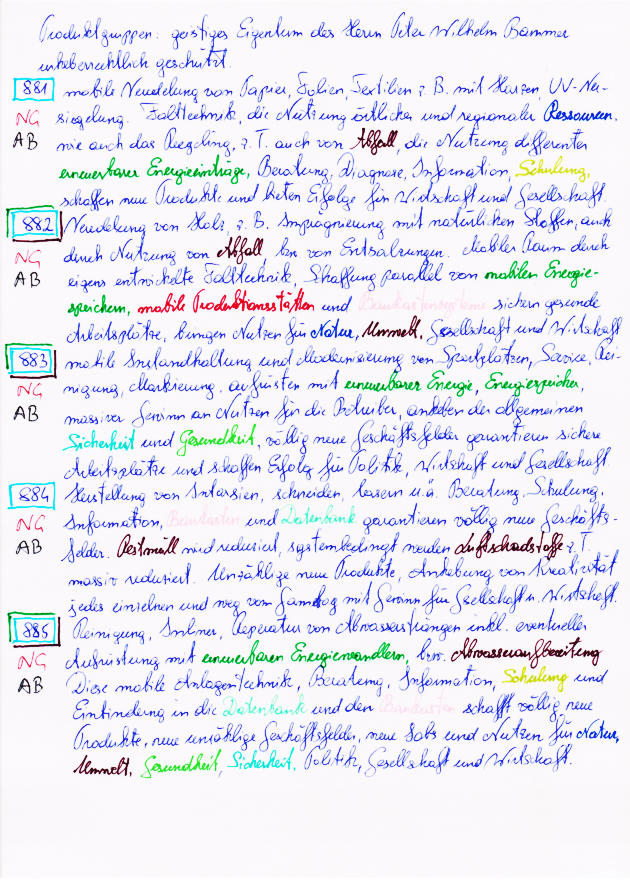 Produktgruppen: geistiges Eigentum des Herrn Peter Wilhelm Bammer
urheberrechtlich geschützt.
881 mobile Veredelung von Papier, Folien, Textilien z.B. mit Harzen, UV-Ver-
NG siegelung. Falttechnik, die Nutzung örtlicher und regionaler Ressourcen,
AB wie auch das Recycling, z.T. auch von Abfall, die Nutzung differenter
erneuerbarer Energieeinträge, Beratung, Diagnose, Information, Schulung,
schaffen neue Produkte und bieten Erfolge für Wirtschaft und Gesellschaft.
882 Veredelung von Holz, z.B. Imprägnierung mit natürlichen Stoffen, auch
NG durch Nutzung von Abfall bzw. von Entsalzungen. Mobiler Raum durch
AB eigens entwickelte Falttechnik, Schaffung parallel von mobilen Energie-
speichern, mobile Produktionsstätten und Baukastensysteme sichern gesunde
Arbeitsplätze, bringen Nutzen für Natur, Umwelt, Gesellschaft und Wirtschaft
883 mobile Instandhaltung und Modernisierung von Sportplätzen, Service, Rei-
NG nigung, Markierung, aufrüsten mit erneuerbarer Energie, Energiespeicher,
AB massiver Gewinn an Nutzen für die Betreiber, anheben der allgemeinen
Sicherheit und Gesundheit, völlig neue Geschäftsfelder garantieren sichere
Arbeitsplätze und schaffen Erfolg für Politik, Wirtschaft und Gesellschaft.
884 Herstellung von Intarsien, schneiden, lasern u.ä. Beratung, Schulung,
NG Information, Baukasten und Datenbank garantieren völlig neue Geschäfts-
AB felder. Restmüll wird reduziert, systembedingt werden Luftschadstoffe z.T.
massiv reduziert. Unzählige neue Produkte, Anhebung von Kreativität
jedes einzelnen und weg vom mit Gewinn für Gesellschaft u. Wirtschaft.
885 Reinigung, Inliner, Reparatur von Abwassersträngen inkl. eventueller
NG Aufrüstung mit erneuerbaren Energiewandlern, bzw. Abwasseraufbereitung
AB Diese mobile Anlagentechnik, Beratung, Information, Schulung und
Einbindung in die Datenbank und den Baukasten schafft völlig neue
Produkte, neue unzählige Geschäftsfelder, neue Jobs und Nutzen für Natur,
Umwelt, Gesundheit, Sicherheit, Politik, Gesellschaft und Wirtschaft.